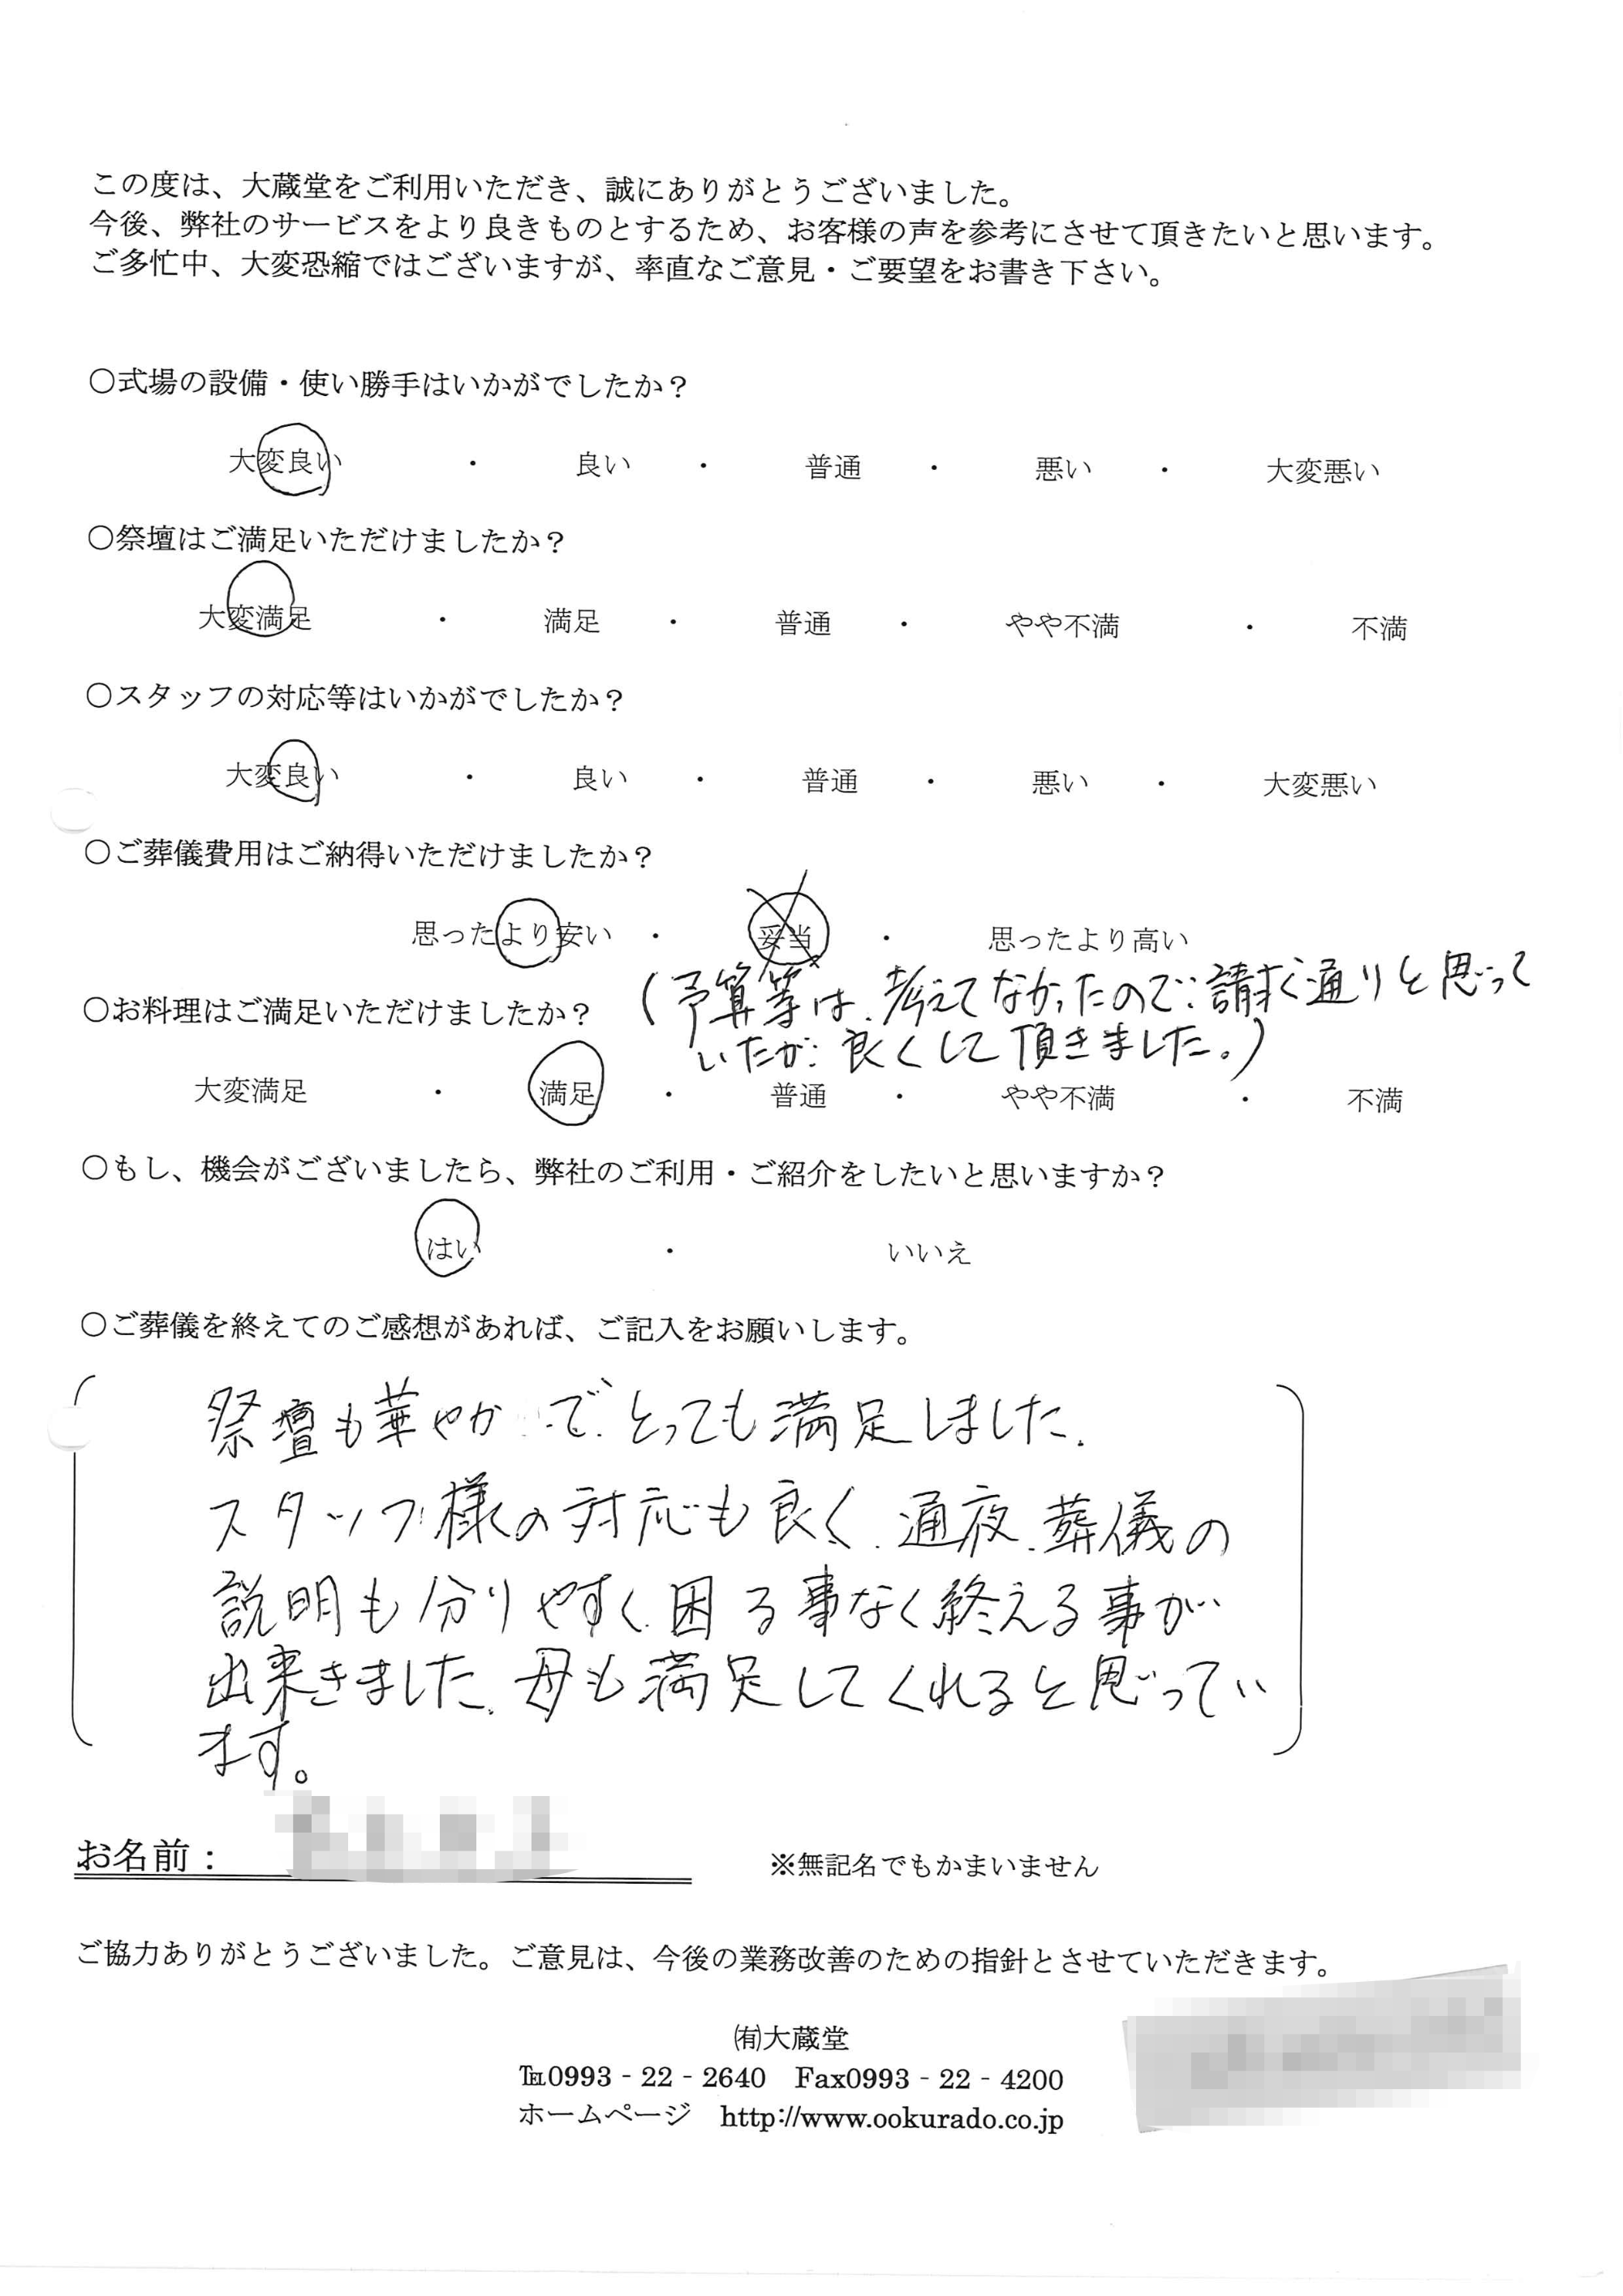 この度は、大蔵堂をご利用いただき、誠にありがとうございました。
今後、弊社のサービスをより良きものとするため、お客様の声を参考にさせて頂きたいと思います。
ご多忙中、大変恐縮ではございますが、率直なご意見・ご要望をお書き下さい。
〇式場の設備・使い勝手はいかがでしたか？
大変良い ・ 良い ・ 普通 ・ 悪い ・ 大変悪い
〇祭壇はご満足いただけましたか？
大変満足 ・ 満足 ・ 普通 ・ やや不満 ・ 不満
〇スタッフの対応等はいかがでしたか？
大変良い ・ 良い ・ 普通 ・ 悪い ・ 大変悪い
〇ご葬儀費用はご納得いただけましたか？
思ったより安い ・ 妥当 ・ 思ったより高い
(予算等は、考えてなかったので、請求通りと思って
いたが、良くして頂きました。)
〇お料理はご満足いただけましたか？
大変満足 ・ 満足 ・ 普通 ・ やや不満 ・ 不満
〇もし、機会がございましたら、弊社のご利用・ご紹介をしたいと思いますか？
はい ・ いいえ
〇ご葬儀を終えてのご感想があれば、ご記入をお願いします。
祭壇も華やかで、とっても満足しました。
スタッフ様の対応も良く、通夜、葬儀の
説明も分りやすく、困る事なく終える事が
出来きました。母も満足してくれると思ってい
ます。
お名前： ※無記名でもかまいません
ご協力ありがとうございました。ご意見は、今後の業務改善のための指針とさせていただきます。
㈲大蔵堂
℡0993‐22‐2640 Fax0993‐22‐4200
ホームページ http://www.ookurado.co.jp